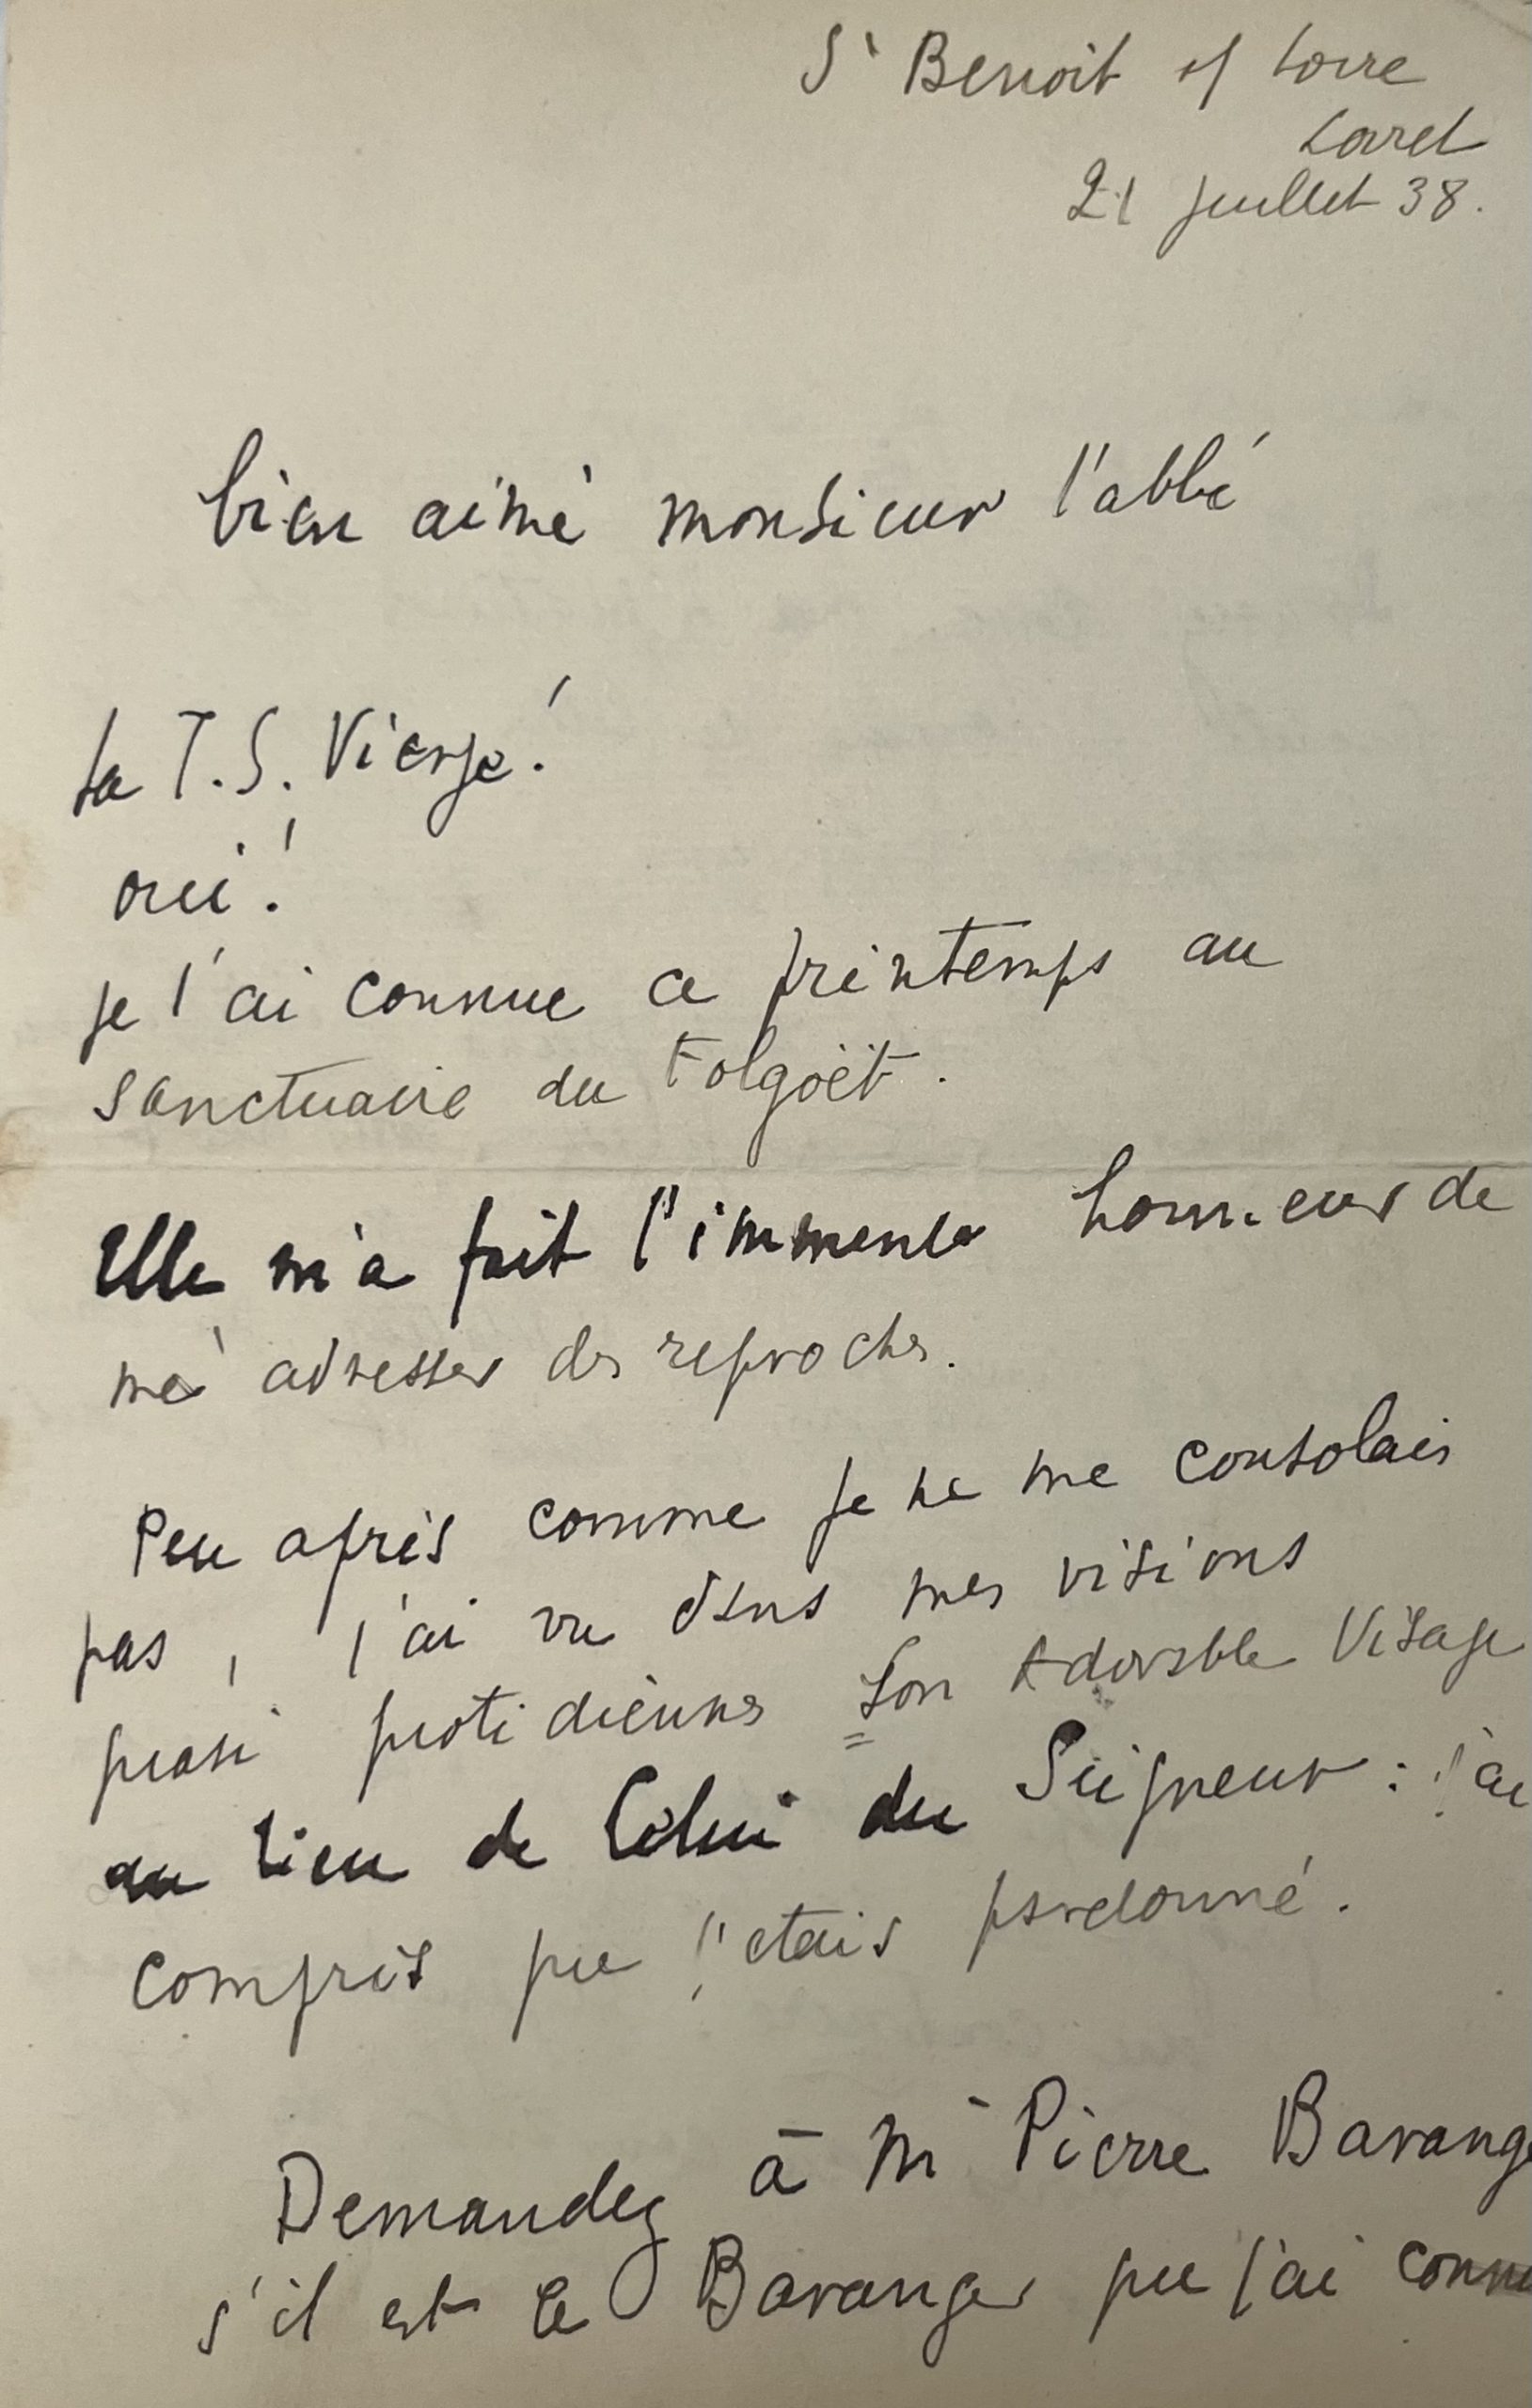 St Benoit s/ Loire
Loiret
21 juillet 38.
bien aimé monsieur l'abbé
La T.S. Vierge!
oui!
je l'ai connue ce printemps au
sanctuaire du Folgoët.
Elle m'a fait l'immense honneur de
me adresser des reproches.
Peu après comme je ne me consolais
pas, j'ai vu dans mes visions
quasi quotidiennes Son Adorable Visage
au lieu de Celui du Seigneur : j'ai
compris que j'étais pardonné.
Demandez à Mr Pierre Barange
s'il est le Baranger que j'ai connu